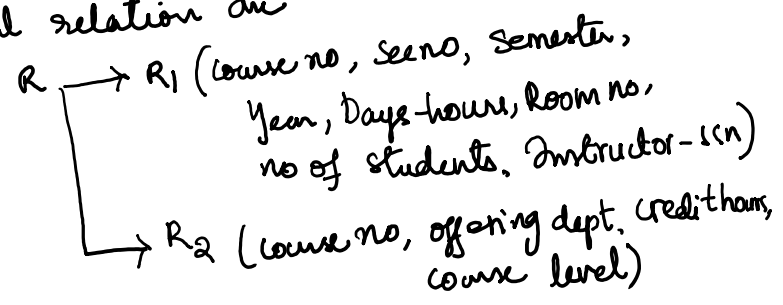 l relation are
R → R1 (course no, secno, Semester,
Year, Days-hours, Room no,
no of students, Instructor-ssn)
→ R2 (course no, offering dept, credithours,
course level)